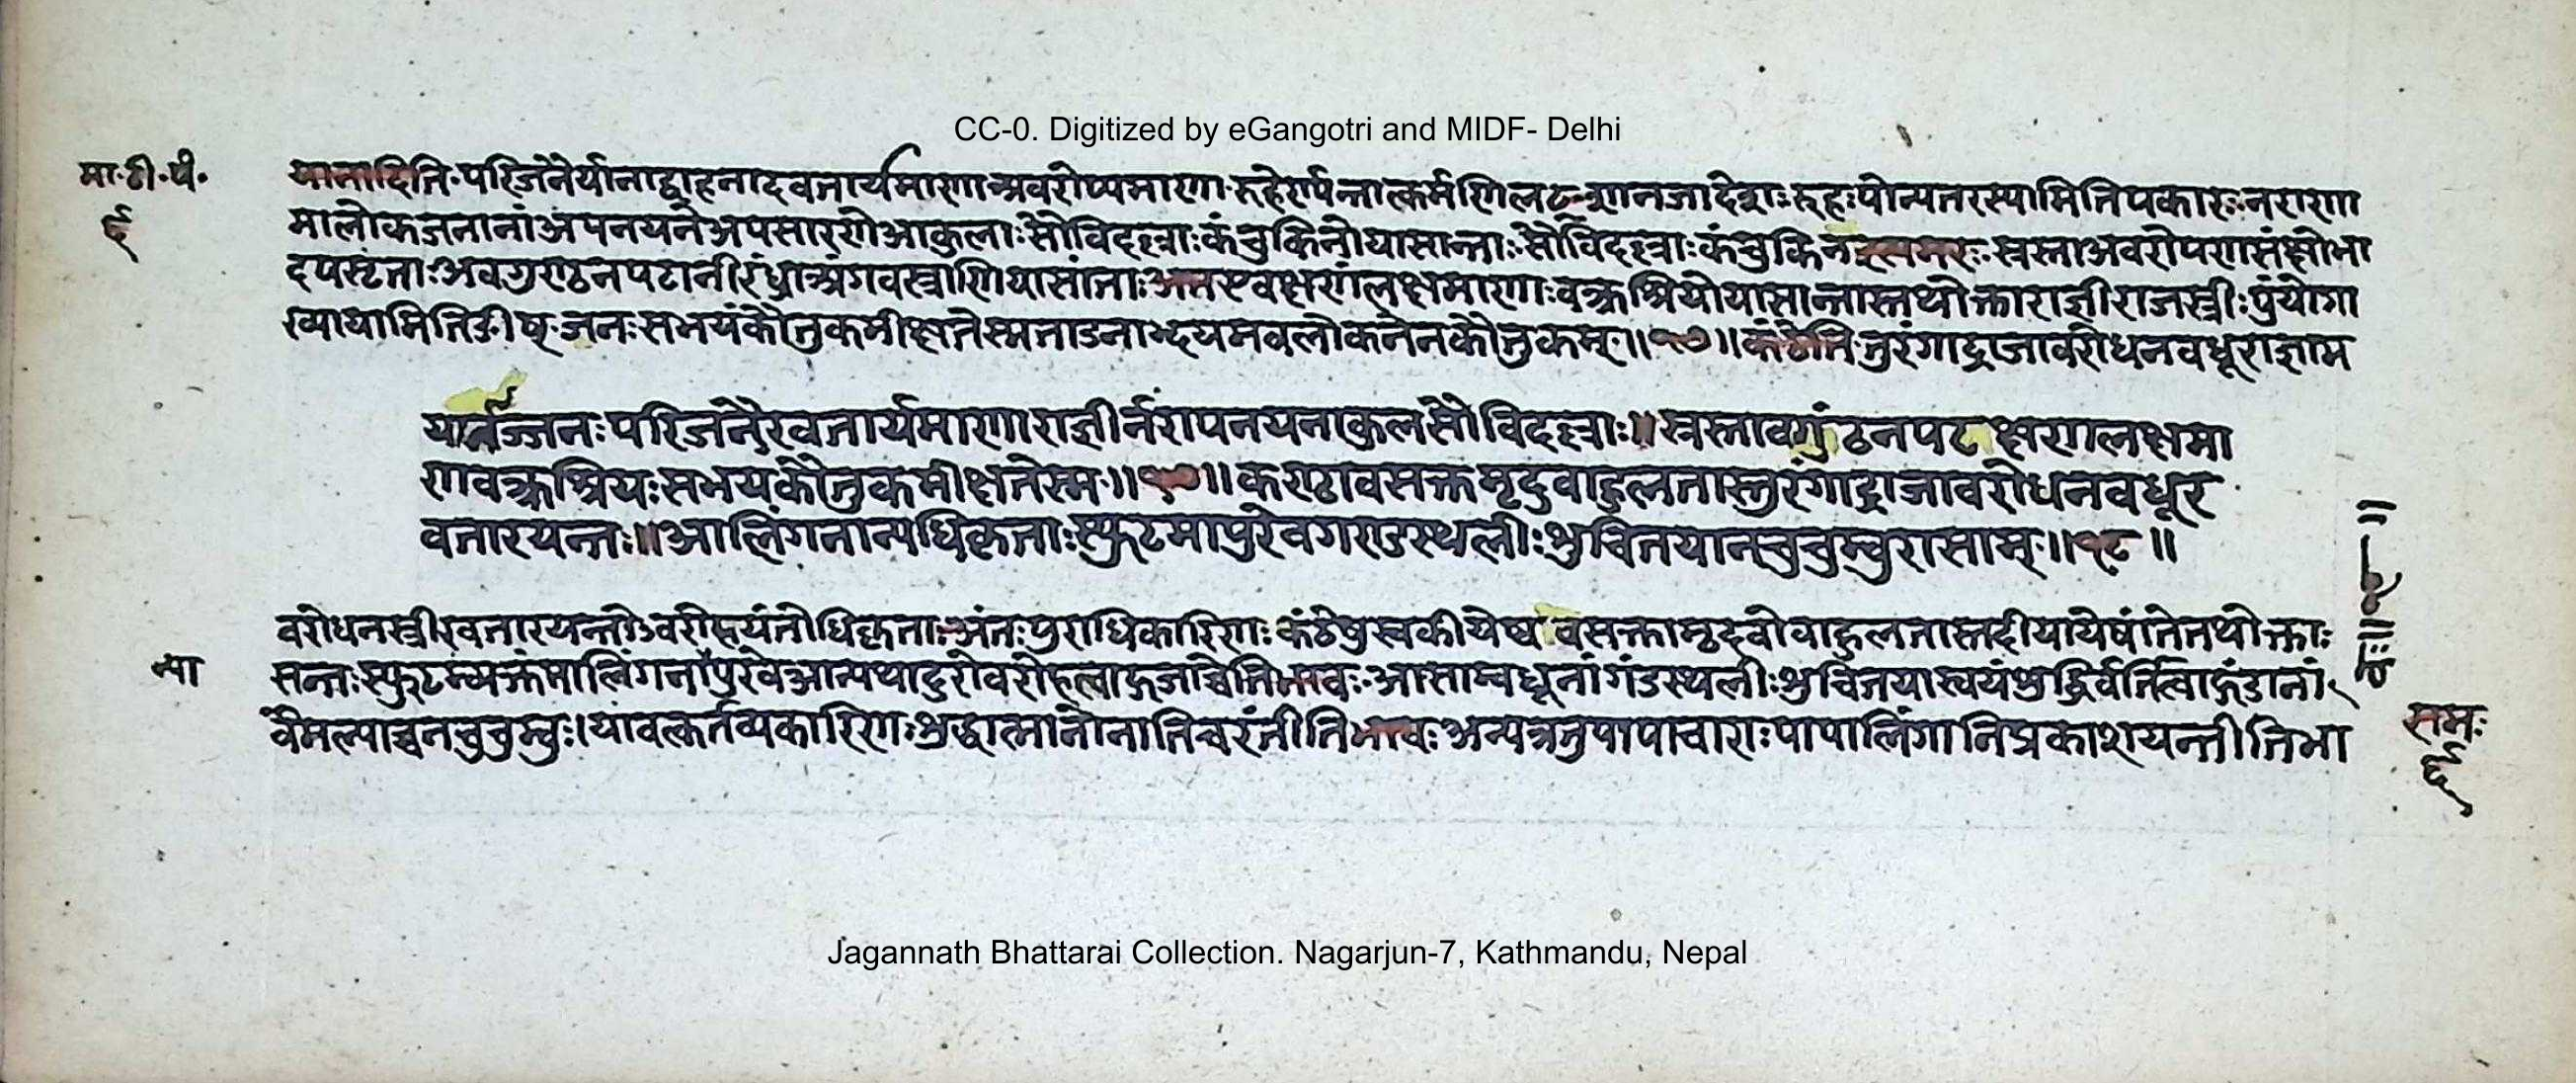 CC-0. Digitized by eGangotri and MIDF- Delhi
मा॰टी॰पं॰
यानादिति॰परिजनैर्यानाद्वाहनादवतार्यमाणाअवरोप्यमाणा॰रुहेर्ण्यन्तात्कर्मणिलटःशानजादेशः॰रुहःपोन्यतरस्यामितिपकारः॰नराणा
६
मालोकजनानांअपनयनेअपसारणेआकुलाःसौविदल्लाःकंचुकिनोयासान्ताः॰सौविदल्लाःकंचुकिन॰स्रस्ताअवरोपणसंक्षोभा
दपसृताःअवगुण्ठनपटानीरंध्राअंगवस्त्राणियासांताःअतएवक्षणंलक्ष्यमाणाःवक्त्रश्रियोयासान्तास्तथोक्ताराज्ञीराजस्त्रीःपुंयोगा
ख्यायामितिङीष्॰जनःसभयंकौतुकमीक्षतेस्मताडनाद्भयमवलोकनेनकौतुकम्॰॥१७॥कंठेति॰तुरंगाद्राजावरोधनवधूराज्ञाम
यानाज्जनःपरिजनैरवतार्यमाणाराज्ञीर्नरापनयनाकुलसौविदल्लाः॥स्रस्तावगुंठनपटक्षणलक्षमा
णवक्त्रश्रियःसभयकौतुकमीक्षतेस्म॰॥१७॥कण्ठावसक्तमृदुवाहुलतास्तुरंगाद्राजावरोधनवधूर
वतारयन्तः॥आलिंगनान्यधिकृताःस्फुटमापुरेवगण्डस्थलीःशुचितयानचुचुम्वुरासाम्॰॥१८॥
वरोधनस्त्रीरवतारयन्तोऽवरोपयंतोधिकृताः॰अंतःपुराधिकारिणःकंठेषुस्वकीयेष्ववसक्तामृदवोवाहुलतास्तदीयायेषांतेतथोक्ताः
न्या
सन्तःस्फुटम्व्यक्तंमालिंगनापुरेवआन्यथादुरोवरोहत्वाद्गजाच्चेतिभावः॰आसाम्वधूनांगंडस्थलीःशुचितयास्वयंशुद्धिर्वर्तित्वाद्गंडानां
वैमल्याच्चनचुचुम्वुः।यावत्कर्तव्यकारिणःशुद्धात्मानोनातिचरंतीतिभावः॰अन्यत्रतुपापाचाराःपापालिंगानिप्रकाशयन्तीतिभा
रामः
६
Jagannath Bhattarai Collection. Nagarjun-7, Kathmandu, Nepal